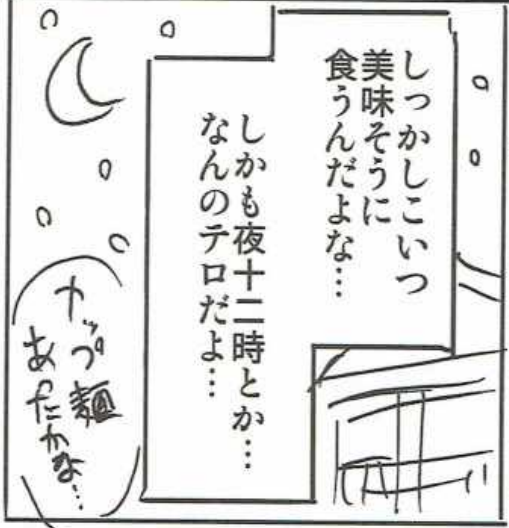 しっかしこいつ
美味そうに
食うんだよな…
しかも夜十二時とか…
なんのテロだよ…
カップ麺
あったかな…